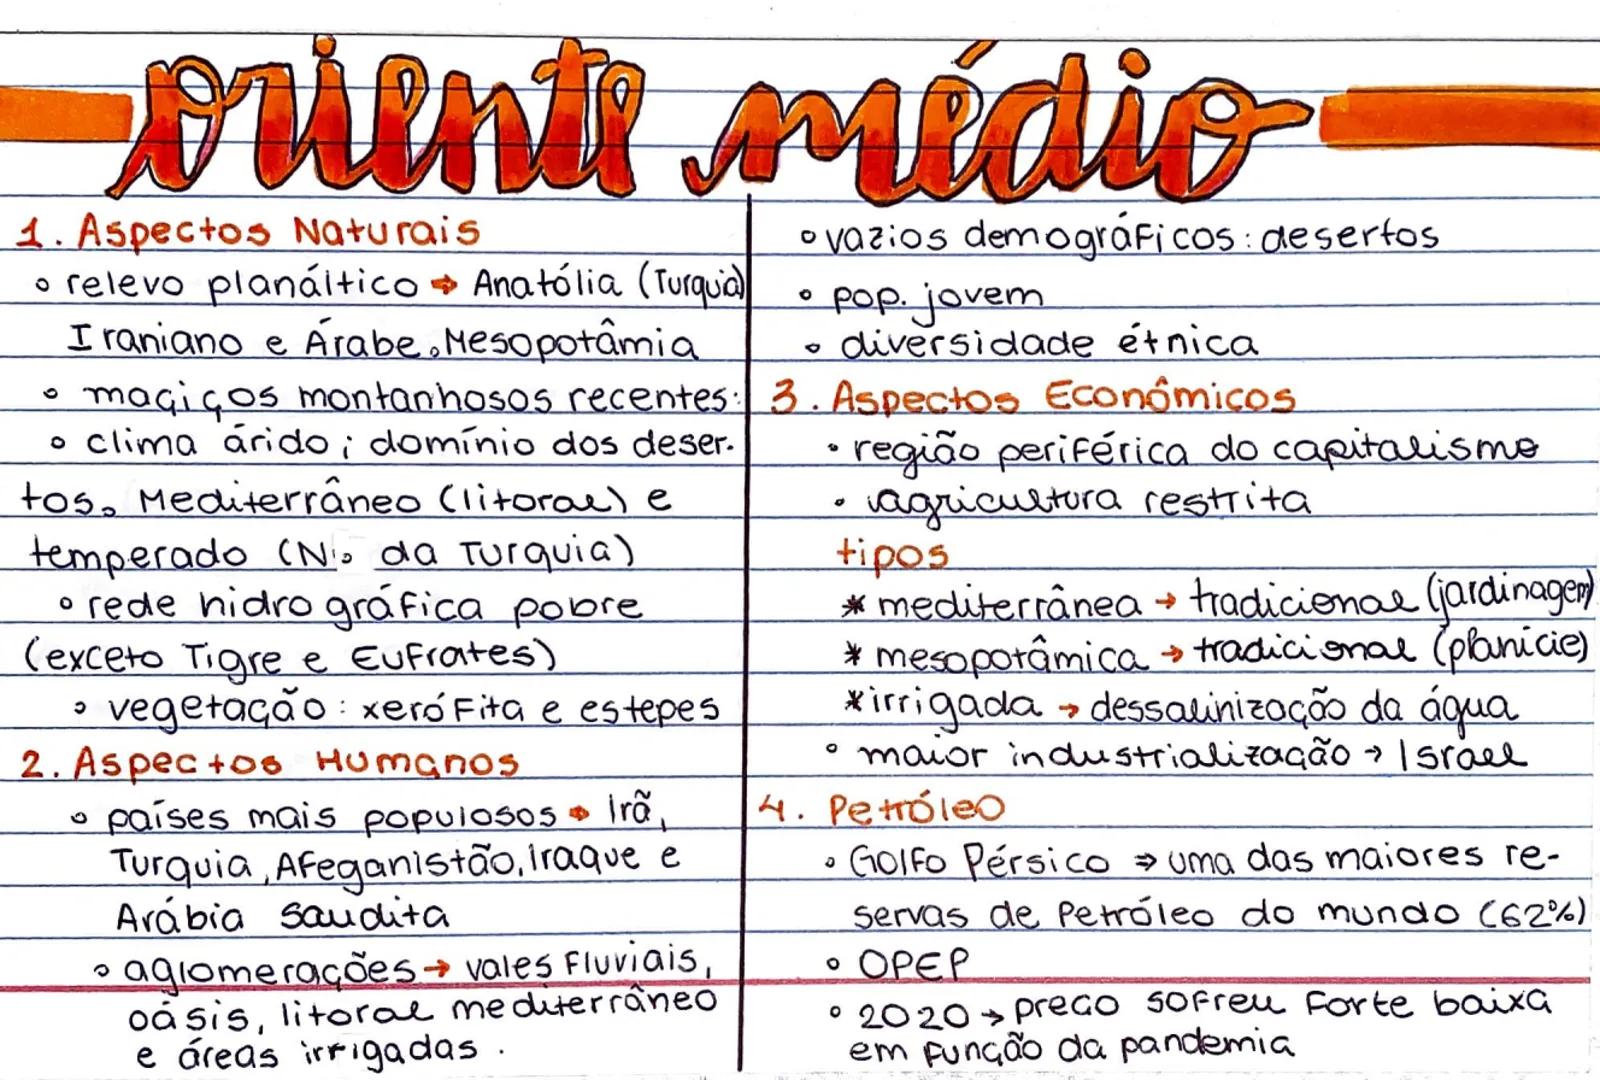 oriente médio
1. Aspectos Naturais
◦ relevo planáltico → Anatólia (Turquia)
Iraniano e Árabe, Mesopotâmia
◦ magiços montanhosos recentes:
◦ clima árido ; domínio dos deser-
tos, Mediterrâneo (litoral) e
temperado (N. da Turquia)
◦ rede hidrográfica pobre
(exceto Tigre e Eufrates)
◦ vegetação : xerófita e estepes
2. Aspectos Humanos
◦ países mais populosos → Irã,
Turquia, Afeganistão, Iraque e
Arábia Saudita
◦ aglomerações → vales fluviais,
oásis, litoral mediterrâneo
e áreas irrigadas .
◦ vazios demográficos : desertos
◦ pop. jovem
◦ diversidade étnica
3. Aspectos Econômicos
• região periférica do capitalismo
• agricultura restrita
tipos
* mediterrânea → tradicional (jardinagem)
* mesopotâmica → tradicional (planície)
* irrigada → dessalinização da água
◦ maior industrialização → Israel
4. Petróleo
• Golfo Pérsico ⇒ uma das maiores re-
servas de Petróleo do mundo (62%)
◦ OPEP
◦ 2020 → preco sofreu forte baixa
em função da pandemia